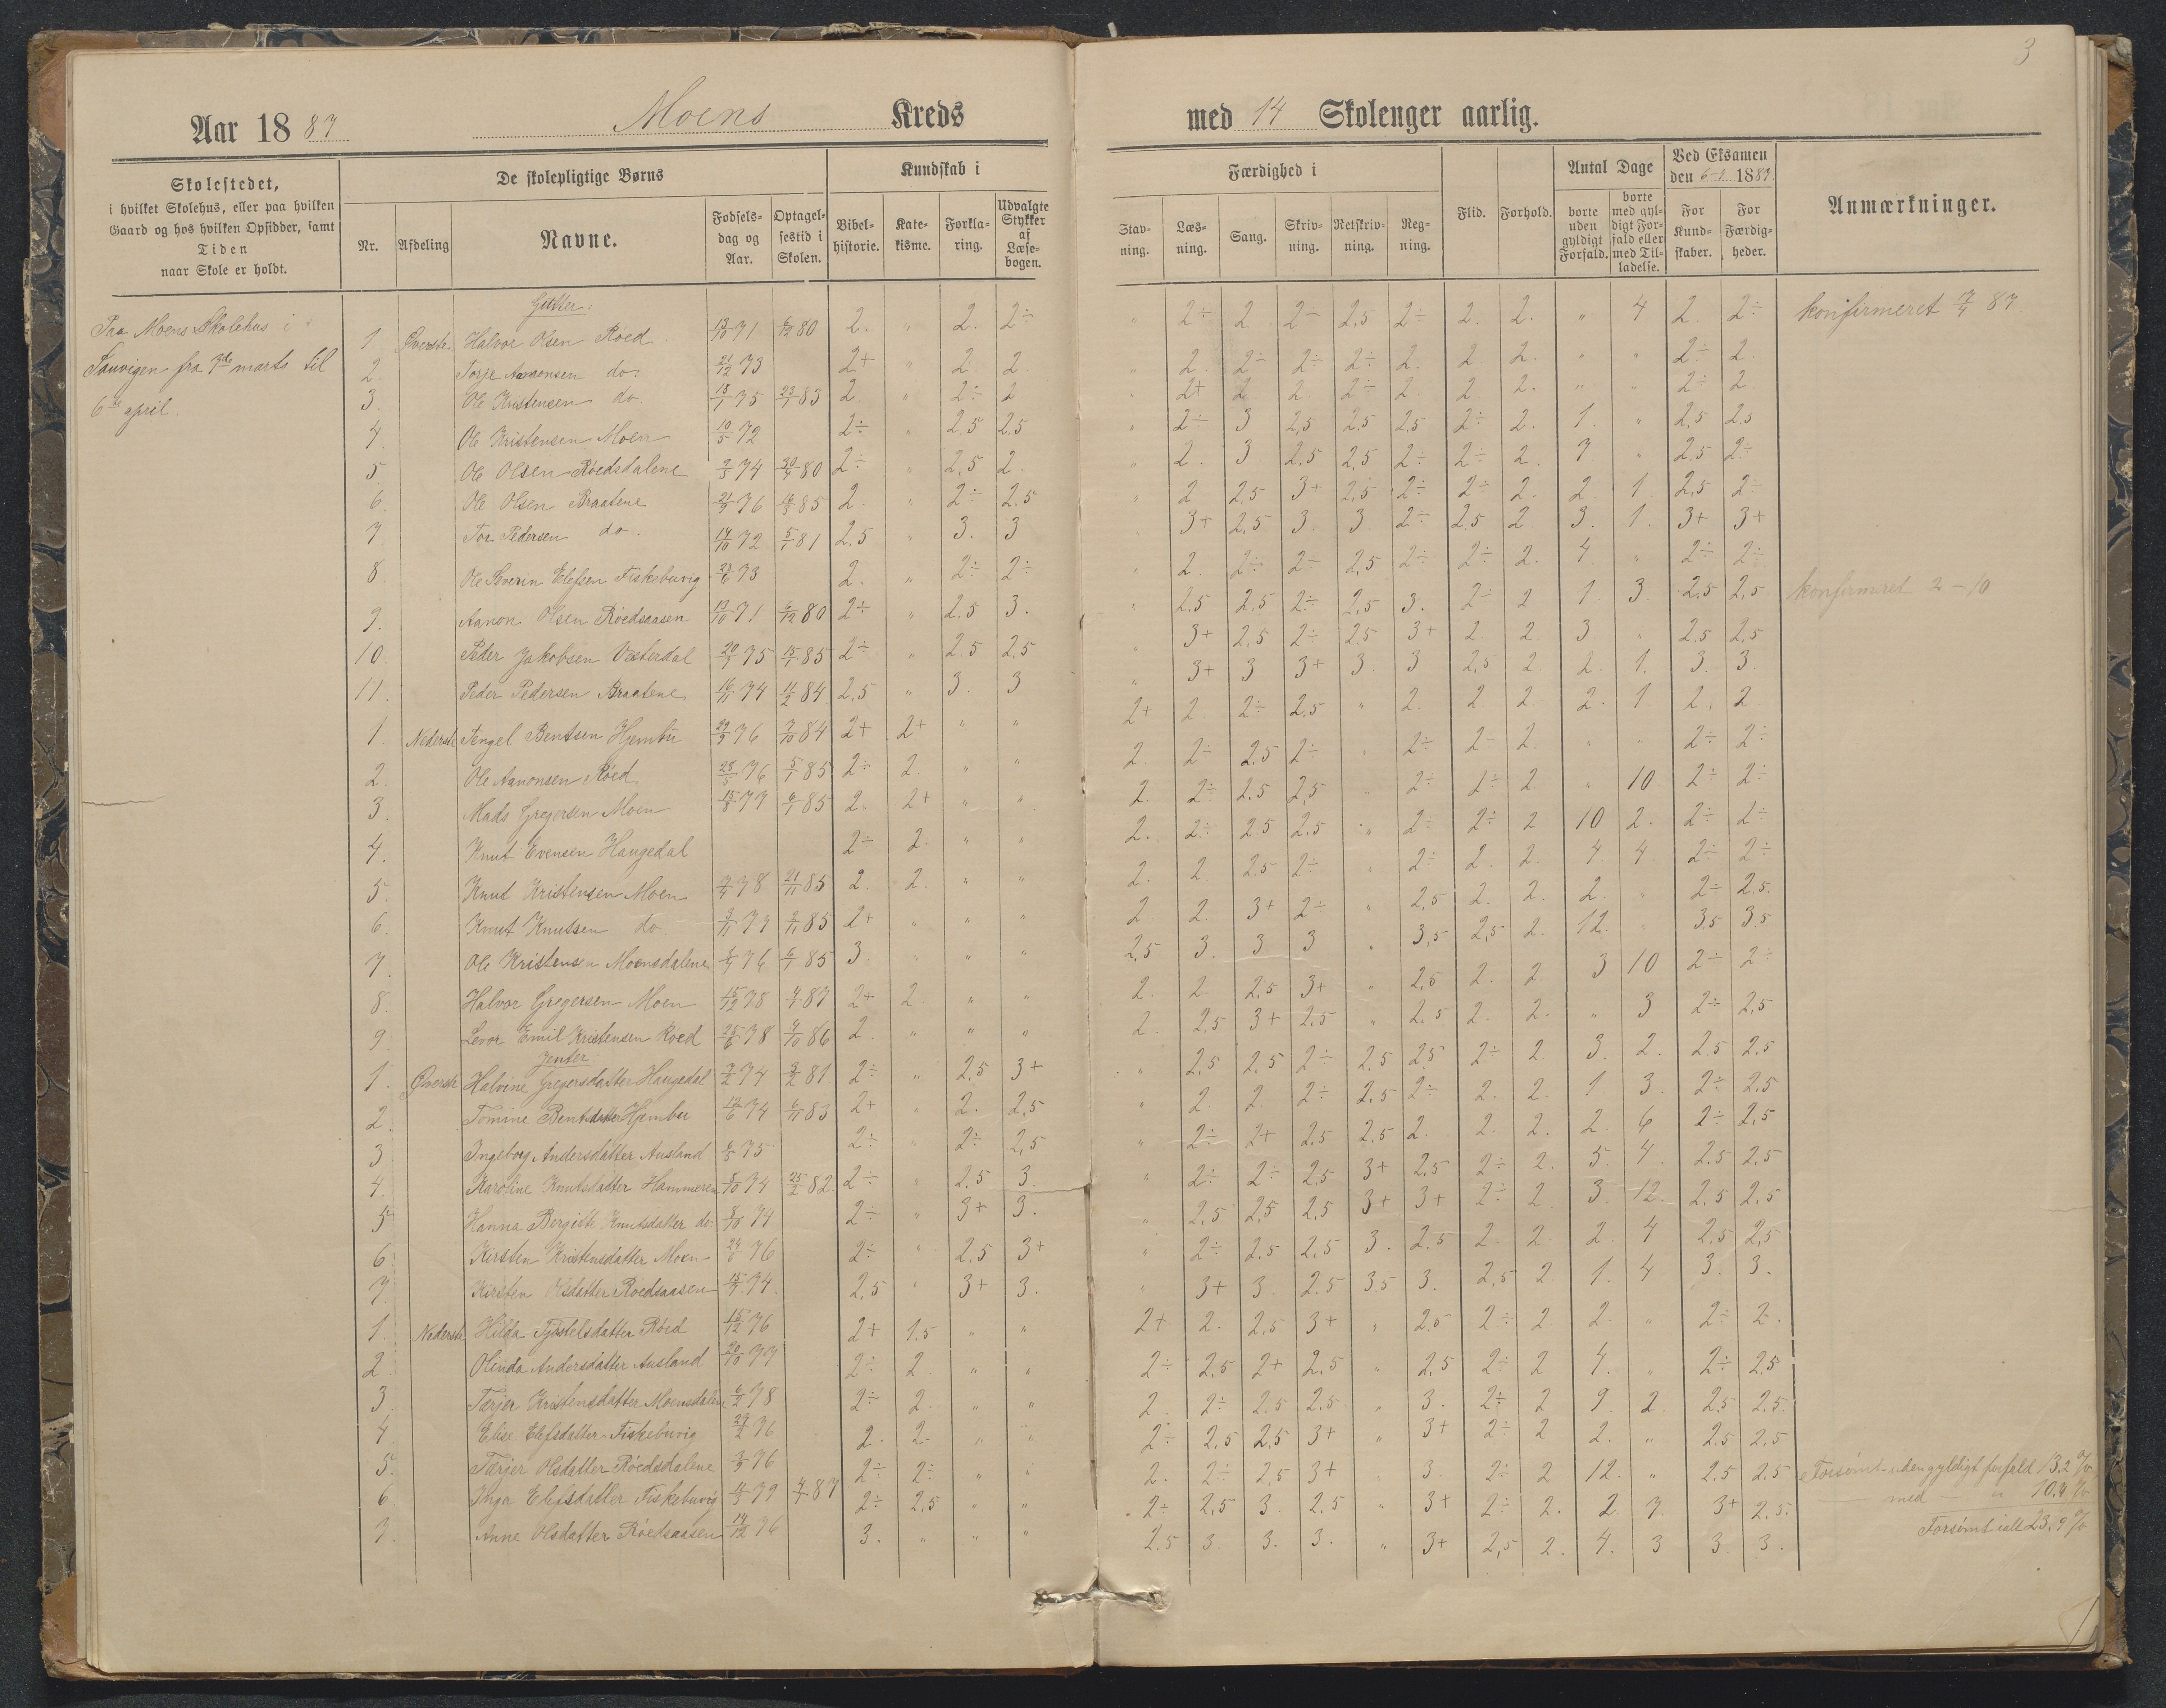 3
Aar 1887 Moens Kreds med 14 Skolenger aarlig.
Skolestedet, i hvilket Skolehus, eller paa hvilken Gaard og hos hvilken Opsidder, samt Tiden naar Skole er holdt.
De skolepligtige Børns
Nr. Afdeling Navne. Fødselsdag og Aar. Optagelsestid i Skolen.
Kundskab i
Bibelhistorie. Katekisme. Forklaring. Udvalgte Stykker af Læsebogen.
Færdighed i
Stavning. Læsning. Sang. Skrivning. Retskrivning. Regning.
Flid. Forhold.
Antal Dage
borte uden gyldigt Forfald. borte med gyldigt Forfald eller med Tilladelse.
Ved Eksamen den 6-4 1887.
For Kundskaber. For Færdigheder.
Anmærkninger.
Paa Moens Skolehus i
Sauvigen fra 7de marts til
6te april.
Gutter:
1. Øverste Halvor Olsen Røed 13/10 71 6/12 80 2. " 2. 2÷ " 2÷ 2 2÷ 2,5 2÷ 2. 2. " 4 2 2÷ konfirmeret 17/4 87.
2. Torje Aanonsen do. 21/12 73 2+ " 2. 2 " 2. 2÷ 2÷ 2÷ 2. 2. 2. " " 2÷ 2
3. Ole Kristensen do 18/1 75 23/1 83 2. " 2÷ 2 " 2+ 2 2 2÷ 2. 2 2. " " 2÷ 2
4. Ole Kristensen Moen 10/5 72 2÷ " 2.5 2.5 " 2÷ 3 2,5 2.5 2,5 2÷ 2. 1. " 2,5 2,5
5. Ole Olsen Røedsdalene 74 80 2÷ " 2,5 2. " 2. 3 2.5 2,5 2÷ 2÷ 2. 7. " 2,5 2÷
6. Ole Olsen Braatene 76 85 2. " 2÷ 2,5 " 2 2.5 3+ 2,5 2÷ 2÷ 2. 2. 1. 2,5 2÷
7 Tor Pedersen do. 14/10 72 5/1 81 2.5 " 3. 3 3+ 2,5 3. 3 2÷ 2,5 2 3. 1. 3+ 3+
8. Ole Severin Elefsen Fiskebuvig 73 2. " 2÷ 2÷ " 2. 2÷ 2÷ 2,5 2÷ 2÷ 2. 4. " 2÷ 2÷
9. Aanon Olsen Røedsaasen 13/10 71 6/12 80 2÷ " 2.5 3. " 2.5 2.5 2÷ 2,5 3. 2÷ 2 1 3. 2.5 2,5 konfirmeret 2-10
10. Peder Jakobsen Vesterdal 75 15/1 85 2÷ " 2.5 2,5 " 3+ 2,5 2÷ 2,5 3+ 2. 2. 3 " 2.5 2.5
11. Peder Pedersen Braatene 16/11 74 11/2 84 2,5 " 3. 3 " 3+ 3 3+ 3. 3 2,5 2. 2. 1. 3. 3
1. Nederste Tengel Bentsen Hjembu 76 7/10 84 2+ 2+ " " 2+ 2 2÷ 2.5 " 2. 2. 2 2. 1 2. 2
2. Ole Aanonsen Røed 28/5 76 5/1 85 2÷ 2. " " 2. 2÷ 2.5 2÷ " 2÷ 2÷ 2. " " 2÷ 2÷
3. Mads Gregersen Moen 15/8 77 6/1 85 2. 2+ " " 2. 2÷ 2.5 2,5 " 2÷ 2÷ 2 " 10 2÷ 2÷
4. Knut Evensen Haugedal 2÷ 2. " " 2. 2÷ 2.5 2.5 " 2÷ 2÷ 2 10 2. 2÷ 2÷
5. Knud Kristensen Moen 78 21/11 85 2. 2. " " 2. 2. 2.5 2÷ " 2÷ 2. 2. 4. 4. 2÷ 2÷
6. Knut Knutsen do. 77 85 2+ " " " 2 2. 3+ 2÷ " 2,5 2. 2. 2. " 2÷ 2.5.
7. Ole Kristensen Moensdalene 76 6/1 85 3 " " " 2,5 3. 3 3 " 3,5 2,5 2. 12. " 3,5 3,5
8. Halvor Gregersen Moen 15/12 78 87 2+ 2 " " 2. 2. 2,5 3+ " 2,5 2. 2. 3 10 2÷ 2÷
9. Levor Emil Kristensen Røed 78 86 2. " " " 2. 2,5 3+ 2,5 " 2.5 2. 2. " 3 2÷ 2,5
Jenter:
1. Øverste Halvine Gregersdatter Haugedal 74 81 2÷ " 2,5 3+ " 2,5 2.5 2÷ 2,5 2,5 2÷ 2 3. 2. 2.5 2,5
2. Tomine Bentsdatter Hjembu 74 6/11 83 2+ " 2. 2,5 " 2 2 2÷ 2.5 2÷ 2. 2. 1. 3. 2÷ 2.5
3 Ingeborg Andersdatter Ausland 75 2÷ " 2÷ 2,5 " 2÷ 2+ 2.5 2,5 2. 2. 2. 2. 6 2÷ 2,5
4. Karoline Knutsdatter Hammeren 8/10 74 25/2 82. 2÷ " 2,5 3. " 2÷ 2÷ 2.5 3+ 2.5 2÷ 2. 5. 4. 2.5 2,5
5 Hanna Bergitte Knutsdatter do. 8/10 74 2÷ " 3+ 3. " 2,5 2,5 2,5 3+ 3+ 2÷ 2. 3. 12. 2.5 2,5
6. Kirsten Kristensdatter Moen 24/6 76 2÷ " 2.5 3+ " 2÷ 2.5 2.5 3. 2.5 2. 2. 2. 4 2.5 2,5
7. Kirsten Olsdatter Roedsaasen 74. 2,5 " 3+ 3. " 3+ 3. 2.5 3.5 3. 2,5 2. 1. 4 3. 3.
1. Nederste Hilda Tjostelsdatter Røed 15/12 76 2+ 1.5 " " 2+ 2. 2,5 3+ " 2.5 2÷ 2. 2. " 2÷ 2.
2 Olinda Andersdatter Ausland 20/10 77 2÷ 2. " " 2÷ 2,5 2+ 2,5 " 2,5 2÷ 2 4. " 2÷ 2,5
3. Tarjer Kristensdatter Moensdalen 6/2 78 2÷ 2. " " 2. 2÷ 2.5 2,5 " 3. 2÷ 2 9. 2. 2.5 2.5.
4. Elise Elefsdatter Fiskebuvig 76 2. 2. " " 2÷ 2.5 2,5 3+ " 3+ 2÷ 2 2. " 2.5 2,5
5. Tarjer Olsdatter Røedsdalene 76 2÷ 2÷ " " 2. 2÷ 2,5 3+ " 3. 2÷ 2 12. " 2.5 2.5 Forsømt uden gyldigt forfald 13.2 %
6. Inga Elefsdatter Fiskebuvig 79 87 2÷ 2,5 " " 2÷ 2,5 3. 2.5 " 3+ 2÷ 2. 2. 7. 3+ 2,5. — med — " 10.4 %
7. Anne Olsdatter Røedsaasen 14/12 76 3. " " " 2.5 3. 3. 3. " 3+ 2,5 2. 4. 3 3 3. Forsømt ialt 23,9 %